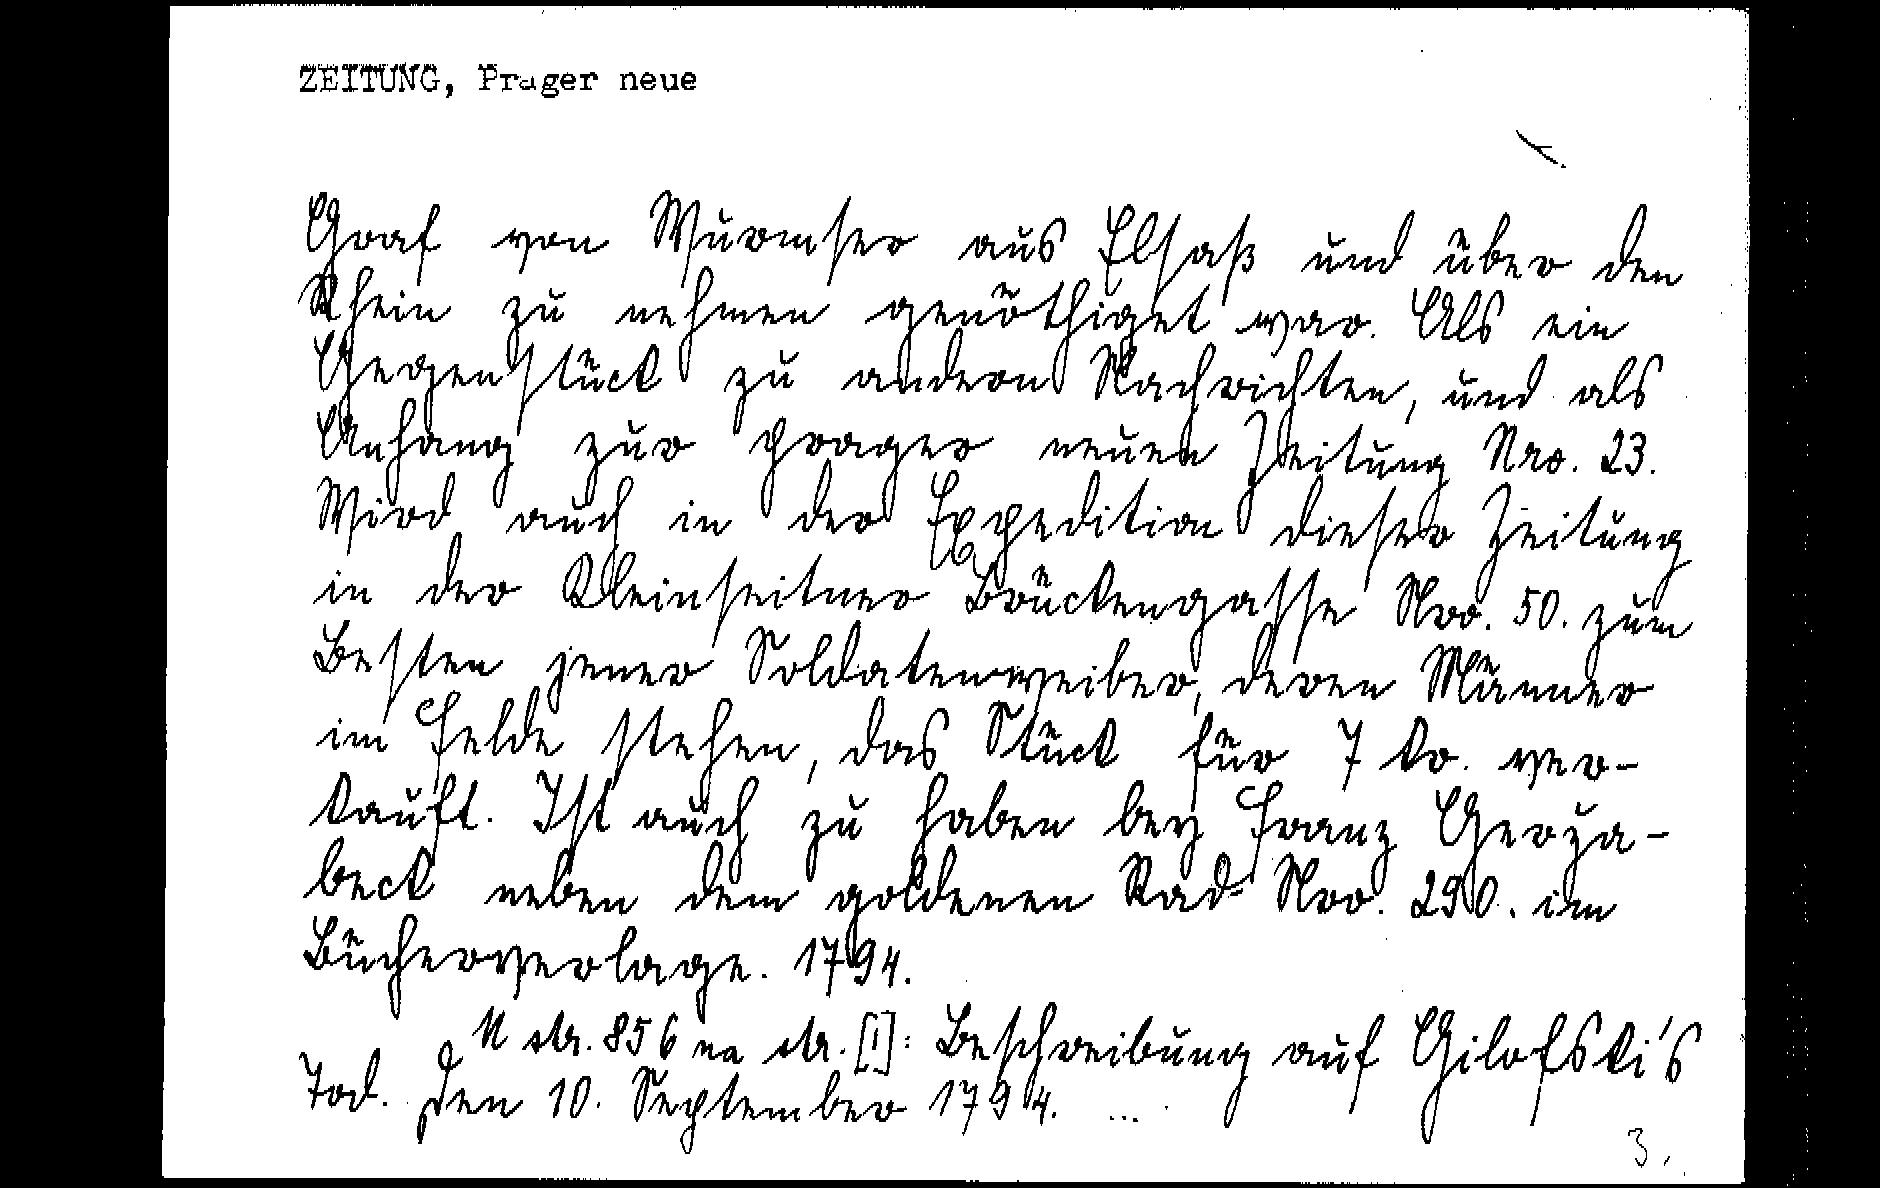 ZEITUNG, Prager neue
Graf von Wurmser aus Elsaß und über den
Rhein zu nehmen genöthiget war. Als ein
Gegenstück zu andern Nachrichten, und als
Anhang zur prager neuen Zeitung Nro. 23.
Wird auch in der Expedition dieser Zeitung
in der Kleinseitner Brückengasse Nro. 50. zum
Besten jener Soldatenweiber, deren Männer
im Felde stehen, das Stück für 7 kr. ver-
kauft. Ist auch zu haben bey Franz Gerža-
beck neben dem goldenen Rad Nro. 290. im
Bücherverlage. 1794.
N str. 856 na str. [1]: Beschreibung auf Gilofski's
Tod. Den 10. September 1794. ...
3.